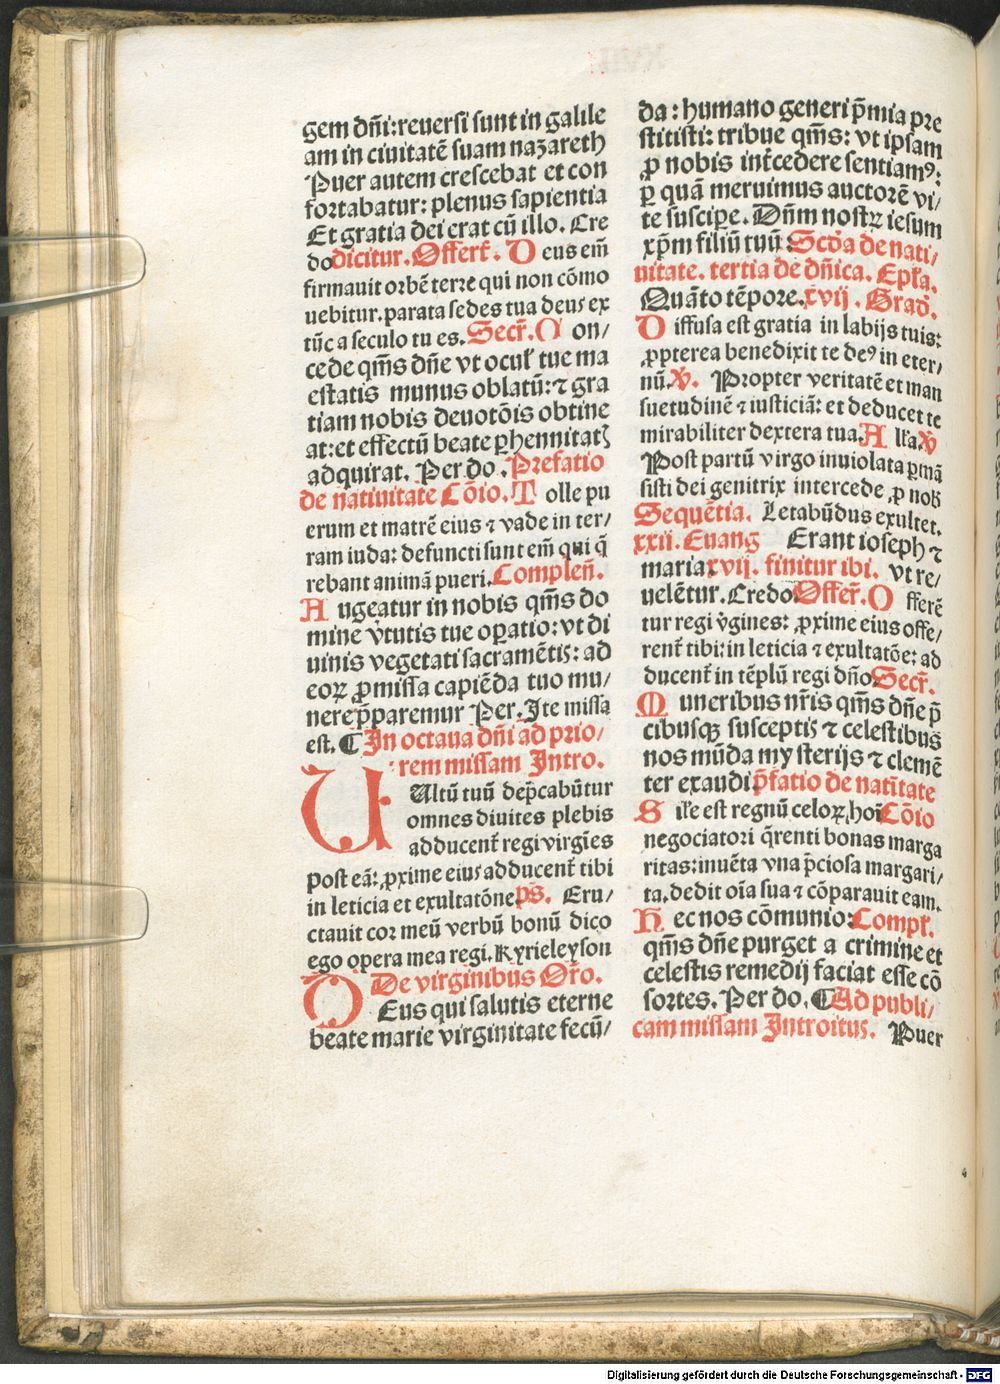 gem dn̄i: reuersi sunt in galile
am in ciuitatē suam nazareth
Puer autem crescebat et con
fortabatur: plenus sapientia
Et gratia dei erat cū illo. Cre
do dicitur. Offert̄. Deus em̄
firmauit orbē terre qui non cōmo
uebitur. parata sedes tua deus ex
tūc a seculo tu es. Secr̄. Con/
cede qm̄s dn̄e vt ocul' tue ma
estatis munus oblatū: ⁊ gra
tiam nobis deuotōis obtine
at: et effectū beate ꝑhennitatꝭ
adquirat. Per do. Prefatio
de natiuitate Cōio. Tolle pu
erum et matrē eius ⁊ vade in ter/
ram iuda: defuncti sunt em̄ qui q̄
rebant animā pueri. Complen̄.
Augeatur in nobis qm̄s do
mine v̓tutis tue oꝑatio: vt di
uinis vegetati sacramētis: ad
eoꝝ ꝓmissa capiēda tuo mu/
nere p̄paremur Per. Ite missa
est. ¶ In octaua dn̄i ad prio/
rem missam Intro.
Ultū tuū dep̄cabūtur
omnes diuites plebis
adducent̄ regi virgīes
post eā: ꝓxime eius adducent̄ tibi
in leticia et exultatōne ps̄. Eru/
ctauit cor meū verbū bonū dico
ego opera mea regi. Kyrieleyson
De virginibus Or̄o.
Deus qui salutis eterne
beate marie virginitate fecū/
da: humano generi p̄mia pre
stitisti: tribue qm̄s: vt ipsam
ꝓ nobis int̄cedere sentiamꝰ:
ꝑ quā meruimus auctorē vi/
te suscipe. Dn̄m nostꝝ iesum
xp̄m filiū tuū Scd̄a de nati/
uitate. tertia de dn̄ica. Epl̄a.
Quāto tēpore. xvij. Grad̄.
Diffusa est gratia in labijs tuis:
ꝓpterea benedixit te deꝰ in eter/
nū. V̄. Propter veritatē et man
suetudinē ⁊ iusticiā: et deducet te
mirabiliter dextera tua. All̄a V̄
Post partū virgo inuiolata ꝑmā
sisti dei genitrix intercede ꝓ nobꝭ
Sequētia. Letabūdus exultet.
xxij. Euang Erant ioseph ⁊
maria xvij. finitur ibi. vt re/
uelētur. Credo Offer̄. Offerē
tur regi v̓gines: ꝓxime eius offe/
rent̄ tibi: in leticia ⁊ exultatōe: ad
ducent̄ in tēplū regi dn̄o Secr̄.
Muneribus nr̄is qm̄s dn̄e p̄
cibusqꝫ susceptis ⁊ celestibus
nos mūda mysterijs ⁊ clemē
ter exaudi p̄fatio de nat̄itate
Sil̄e est regnū celoꝝ hoī Cōio
negociatori q̄renti bonas marga
ritas: inuēta vna p̄ciosa margari/
ta. dedit oīa sua ⁊ cōparauit eam.
Hec nos cōmunio: Compl̄.
qm̄s dn̄e purget a crimine et
celestis remedij faciat esse cō
sortes. Per do. ¶ Ad publi/
cam missam Introitus. Puer
Digitalisierung gefördert durch die Deutsche Forschungsgemeinschaft - DFG